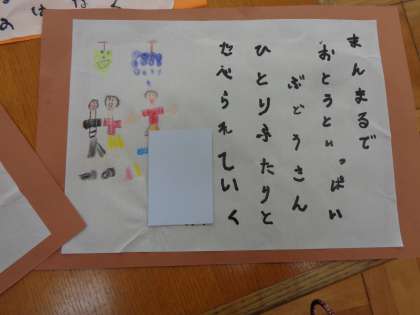 まんまるで
おとうといっぱい
ぶどうさん
ひとりふたりと
たべられていく